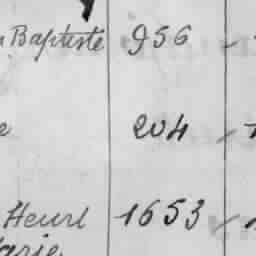 Baptiste 956
204
Henri 1653
Marie